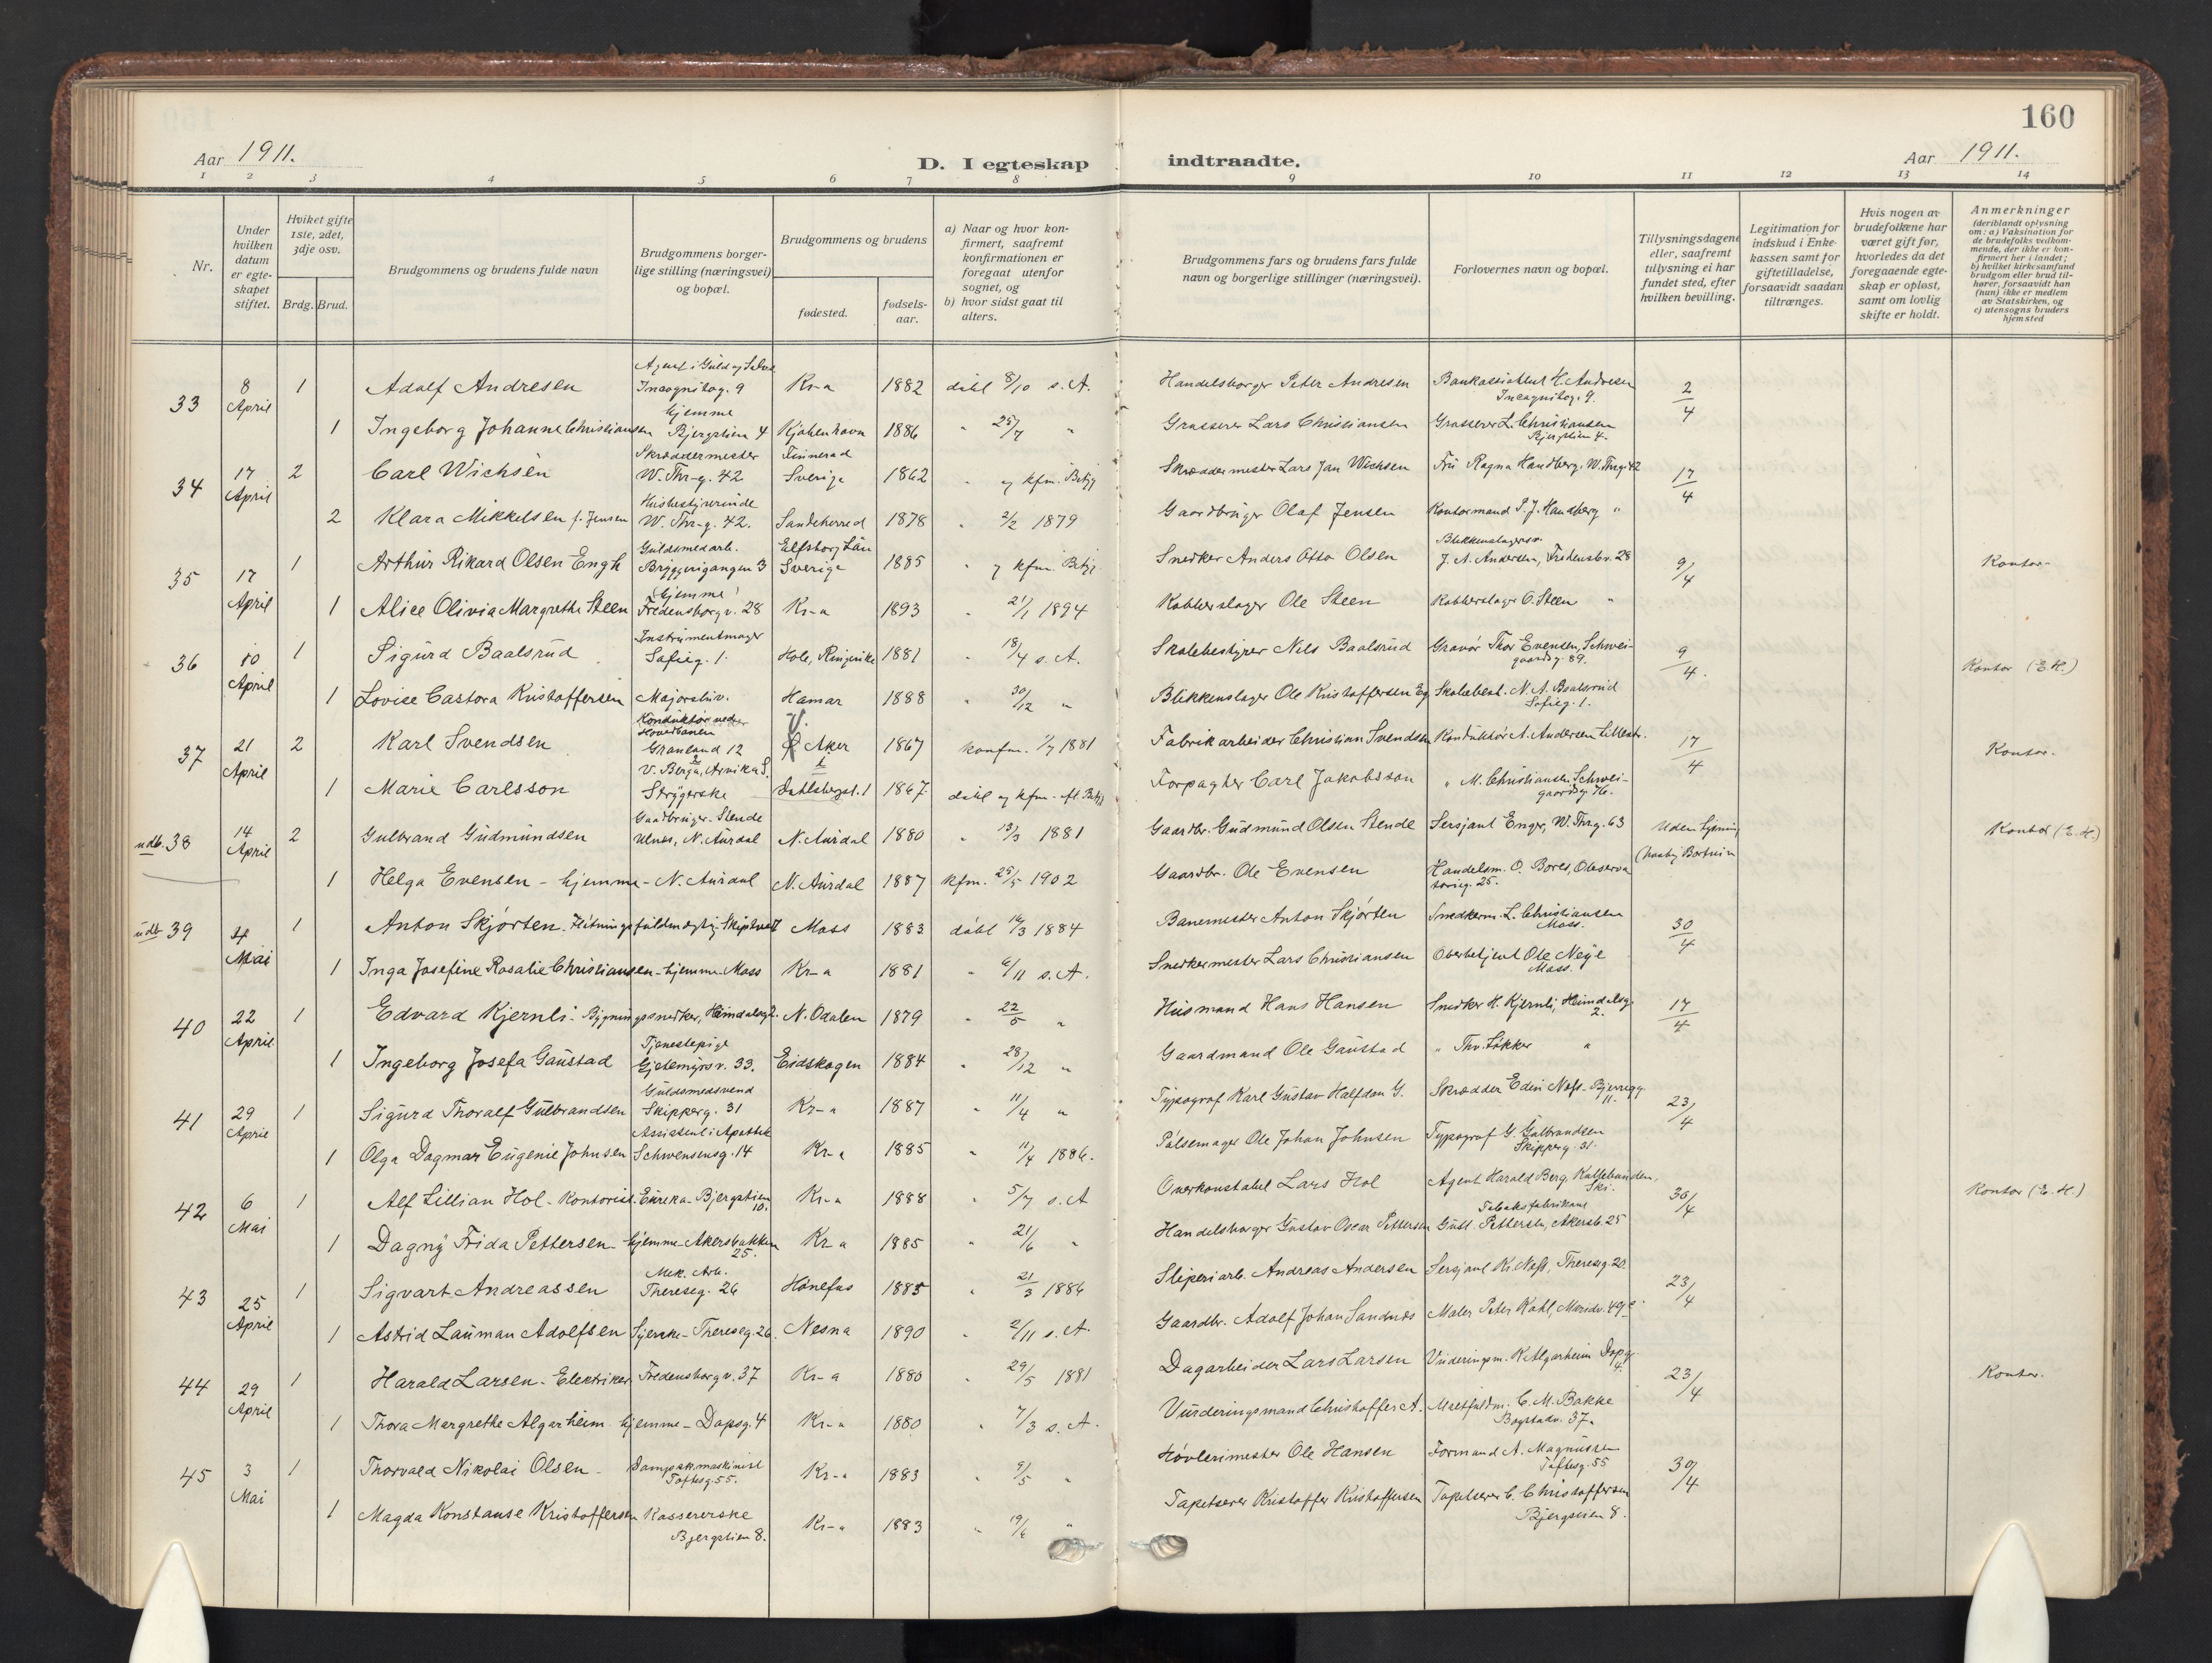 160
Aar 1911.
D. I egteskap indtraadte.
Aar 1911.
1 2 3 4 5 6 7 8 9 10 11 12 13 14
Nr.
Under hvilken datum er egteskapet stiftet.
Hvilket gifte 1ste, 2det, 3dje osv.
Brdg. Brud.
Brudgommens og brudens fulde navn
Brudgommens borgerlige stilling (næringsvei) og bopæl.
Brudgommens og brudens
fødested.
fødselsaar.
a) Naar og hvor konfirmert, saafremt konfirmationen er foregaat utenfor sognet, og
b) hvor sidst gaat til alters.
Brudgommens fars og brudens fars fulde navn og borgerlige stillinger (næringsvei).
Forlovernes navn og bopæl.
Tillysningsdagene eller, saafremt tillysning ei har fundet sted, efter hvilken bevilling.
Legitimation for indskud i Enkekassen samt for giftetilladelse, forsaavidt saadan tiltrænges.
Hvis nogen av brudefolkene har været gift før, hvorledes da det foregaaende egteskap er opløst, samt om lovlig skifte er holdt.
Anmerkninger (deriblandt oplysning om: a) Vaksination for de brudefolks vedkommende, der ikke er konfirmert her i landet; b) hvilket kirkesamfund brudgom eller brud tilhører, forsaavidt han (hun) ikke er medlem av Statskirken, og c) utensogns bruders hjemsted
33 8 April 1 Adolf Andresen Agent i Guld og Sølv Incognitog. 9 Kr-a 1882 døbt 8/10 s. A. Handelsborger Peter Andresen Bankassistent H. Andresen Incognitog. 9. 2/4
1 Ingeborg Johanne Christiansen hjemme Bjergstien 4 Kjøbenhavn 1886 " 25/7 " Grosserer Lars Christiansen Grosserer L. Christiansen Bjergstien 4.
34 17 April 2 Carl Wichsèn Skræddermester W. Thr-g. 42 Finnerød Sverige 1862 " og kfm. Betyg Skræddermester Lars Jan Wichsen Frü Ragna Handberg, W. Thrg 42 17/4
2 Klara Mikkelsen f. Jensen Husbestyrerinde W. Thr-g. 42. Sandeherred 1878 " 2/2 1879 Gaardbruger Olaf Jensen Kontormand P. J. Handberg "
35 17 April 1 Arthur Rikard Olsen Engh Guldsmedarb. Bryggerigangen 3 Elfsborg Län Sverige 1885 " og kfm. Betyg Snedker Anders Otto Olsen Blikkenslagersv. J. A. Andersen, Fredensbv. 28 9/4 Kontor.
1 Alice Olivia Margrethe Steen hjemme Fredensborgv. 28 Kr-a 1893 " 21/1 1894 Kobberslager Ole Steen Kobberslager O. Steen "
36 10 April 1 Sigurd Baalsrud Instrumentmager Sofieg. 1. Hole, Ringerike 1881 " 18/4 s. A. Skolebestyrer Nils Baalsrud Gravør Thor Evensen, Schweigaardsg. 89. 9/4. Kontor (E. H.)
1 Lovise Castora Kristoffersen Majorstuv. Hamar 1888 " 30/12 " Blikkenslager Ole Kristoffersen Eg Skolebest. N. A. Baalsrud Sofieg. 1.
37 21 April 2 Karl Svendsen Konduktør ved Hovedbanen Grønland 12 Ø Aker 1867 konfm. 1/7 1881 Fabrikarbeider Christian Svendsen Konduktør A. Andersen Lillestr. 17/4 Kontor.
1 Marie Carlsson V. Berga, Arvika S. Strygerske Dahlsbergst. 1 1867 døbt og kfm. Forpagter Carl Jakobsson " M. Christiansen Schweigaardsg. 76.
udb. 38 14 April 2 Gulbrand Gudmundsen Gaardbruger Stende Ulnes, N. Aurdal N. Aurdal 1880 " 13/3 1881 Gaardbr. Gudmund Olsen Stende Sersjant Enger, W. Thrg. 63 Uden lysning Kontor (E. H.)
1 Helga Evensen - hjemme - N. Aurdal N. Aurdal 1887 kfm. 25/5 1902 Gaardbr. Ole Evensen Handelsm. O. Bores, Observatorieg. 25.
udb 39 4 Mai 1 Anton Skjørten. Fløtningsfuldmægtig, Skiptvedt Moss 1883 døbt 16/3 1884 Banemester Anton Skjørten Snedkerm. L. Christiansen Moss. 30/4
1 Inga Josefine Rosalie Christiansen - hjemme Moss Kr-a 1881 " 6/11 s. A. Snedkermester Lars Christiansen Overbetjent Ole Neye Moss.
40 22 April 1 Edvard Kjernli - Bygningssnedker, Heimdalsg. 2. N. Odalen 1879 " 22/5 " Husmand Hans Hansen Snedker H. Kjernli, Heimdalsg. 2. 17/4
1 Ingeborg Josefa Gaustad Tjenestepige Gjetemyrsv. 33. Eidskogen 1884 " 28/12 " Gaardmand Ole Gaustad " Thv. Løkker "
41 29 April 1 Sigurd Thoralf Gulbrandsen Guldsmedsvend Skipperg. 31 Kr-a 1887 " 11/4 " Typograf Karl Gustav Halfdan G. Skrædder Edin Næss - Bjerregg. 11. 23/4
1 Olga Dagmar Eugenie Johnsen Assistent i Apothek Schwensensg. 14 Kr-a 1885 " 11/4 1886. Pølsemager Ole Johan Johnsen Typograf G. Gulbrandsen Skipperg. 31.
42 6 Mai 1 Alf Lillian Hol - Kontorist Eureka - Bjergstien 10. Kr-a 1888 " 5/7 s. A Overkonstabel Lars Hol Agent Harald Berg, Ski. 30/4 Kontor (E. H.)
1 Dagny Frida Pettersen - hjemme - Akersbakken 25. Kr-a 1885 " 21/6 " Handelsborger Gustav Oscar Pettersen Tobaksfabrikant Gust. Pettersen, Akersb. 25
43 25 April 1 Sigvart Andreassen Mek. Arb. Thereseg. 26 Hønefos 1885 " 21/3 1886 Sliperiarb. Andreas Andersen Sersjant Kr. Næss, Thereseg. 20. 23/4
1 Astrid Lauman Adolfsen Syerske - Thereseg. 26. Nesna 1890 " 2/11 s. A. Gaardbr. Adolf Johan Sandnes Maler Peter Kahl,
44 29 April 1 Harald Larsen - Elektriker Fredensborgv. 37 Kr-a 1880 " 29/5 1881 Dagarbeider Lars Larsen Vurderingsm. K. Algarheim Dopsg. 4. 23/4 Kontor.
1 Thora Margrethe Algarheim hjemme - Dopsg. 4 Kr-a 1880 " 7/3 s. A. Vurderingsmand Christoffer A. C. M. Bakke Bogstadv. 37.
45 3 Mai 1 Thorvald Nikolai Olsen - Dampskmaskinist Toftesg. 55. Kr-a 1883 " 9/5 " Høvlerimester Ole Hansen Formand A. Magnussen Toftesg. 55 30/4
1 Magda Konstanse Kristoffersen Kassererske Bjergstien 8. Kr-a 1883 " 19/6 " Tapetserer Kristoffer Kristoffersen Tapetserer C. Christoffersen Bjergstien 8.